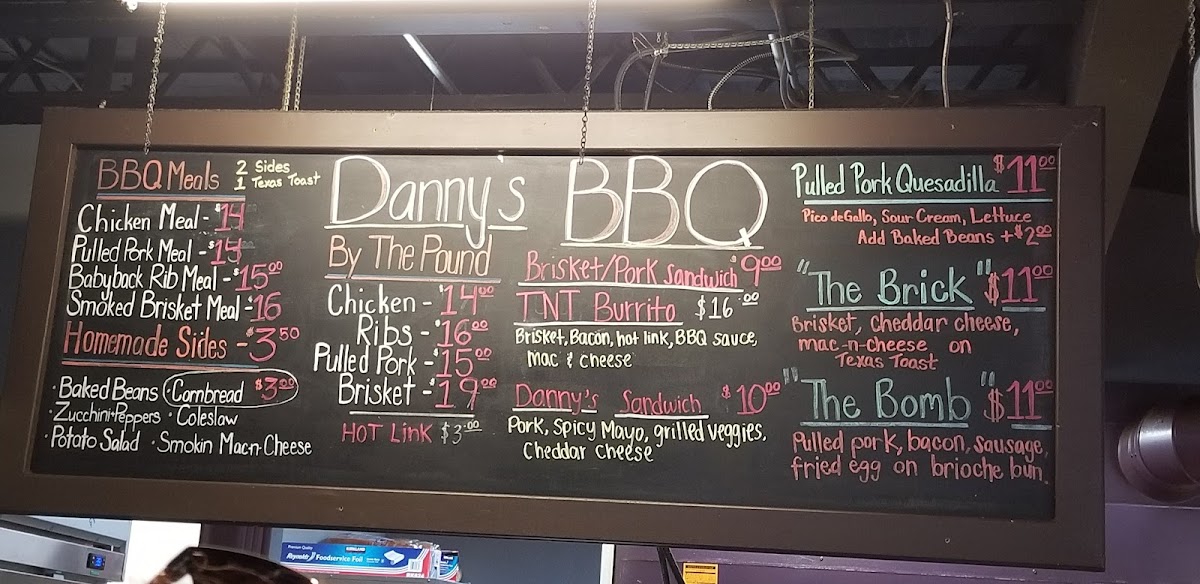 BBQ Meals 2 Sides
1 Texas Toast
Chicken Meal - $14
Pulled Pork Meal - $14
Babyback Rib Meal - $15.00
Smoked Brisket Meal - $16
Homemade Sides - $3.50
· Baked Beans Cornbread $3.00
· Zucchini+Peppers · Coleslaw
· Potato Salad · Smokin Mac-n-Cheese
Danny's BBQ
By The Pound
Chicken - $14.00
Ribs - $16.00
Pulled Pork - $15.00
Brisket - $19.00
HOT LINK $3.00
Brisket/Pork Sandwich $9.00
TNT Burrito $16.00
Brisket, Bacon, hot link, BBQ sauce,
Mac & cheese
Danny's Sandwich $10.00
Pork, Spicy Mayo, grilled veggies,
Cheddar Cheese
Pulled Pork Quesadilla $11.00
Pico de Gallo, Sour Cream, Lettuce
Add Baked Beans + $2.00
"The Brick" $11.00
Brisket, Cheddar cheese,
mac-n-cheese on
Texas Toast
"The Bomb" $11.00
Pulled pork, bacon, sausage,
fried egg on brioche bun.
Reynolds Foodservice Foil